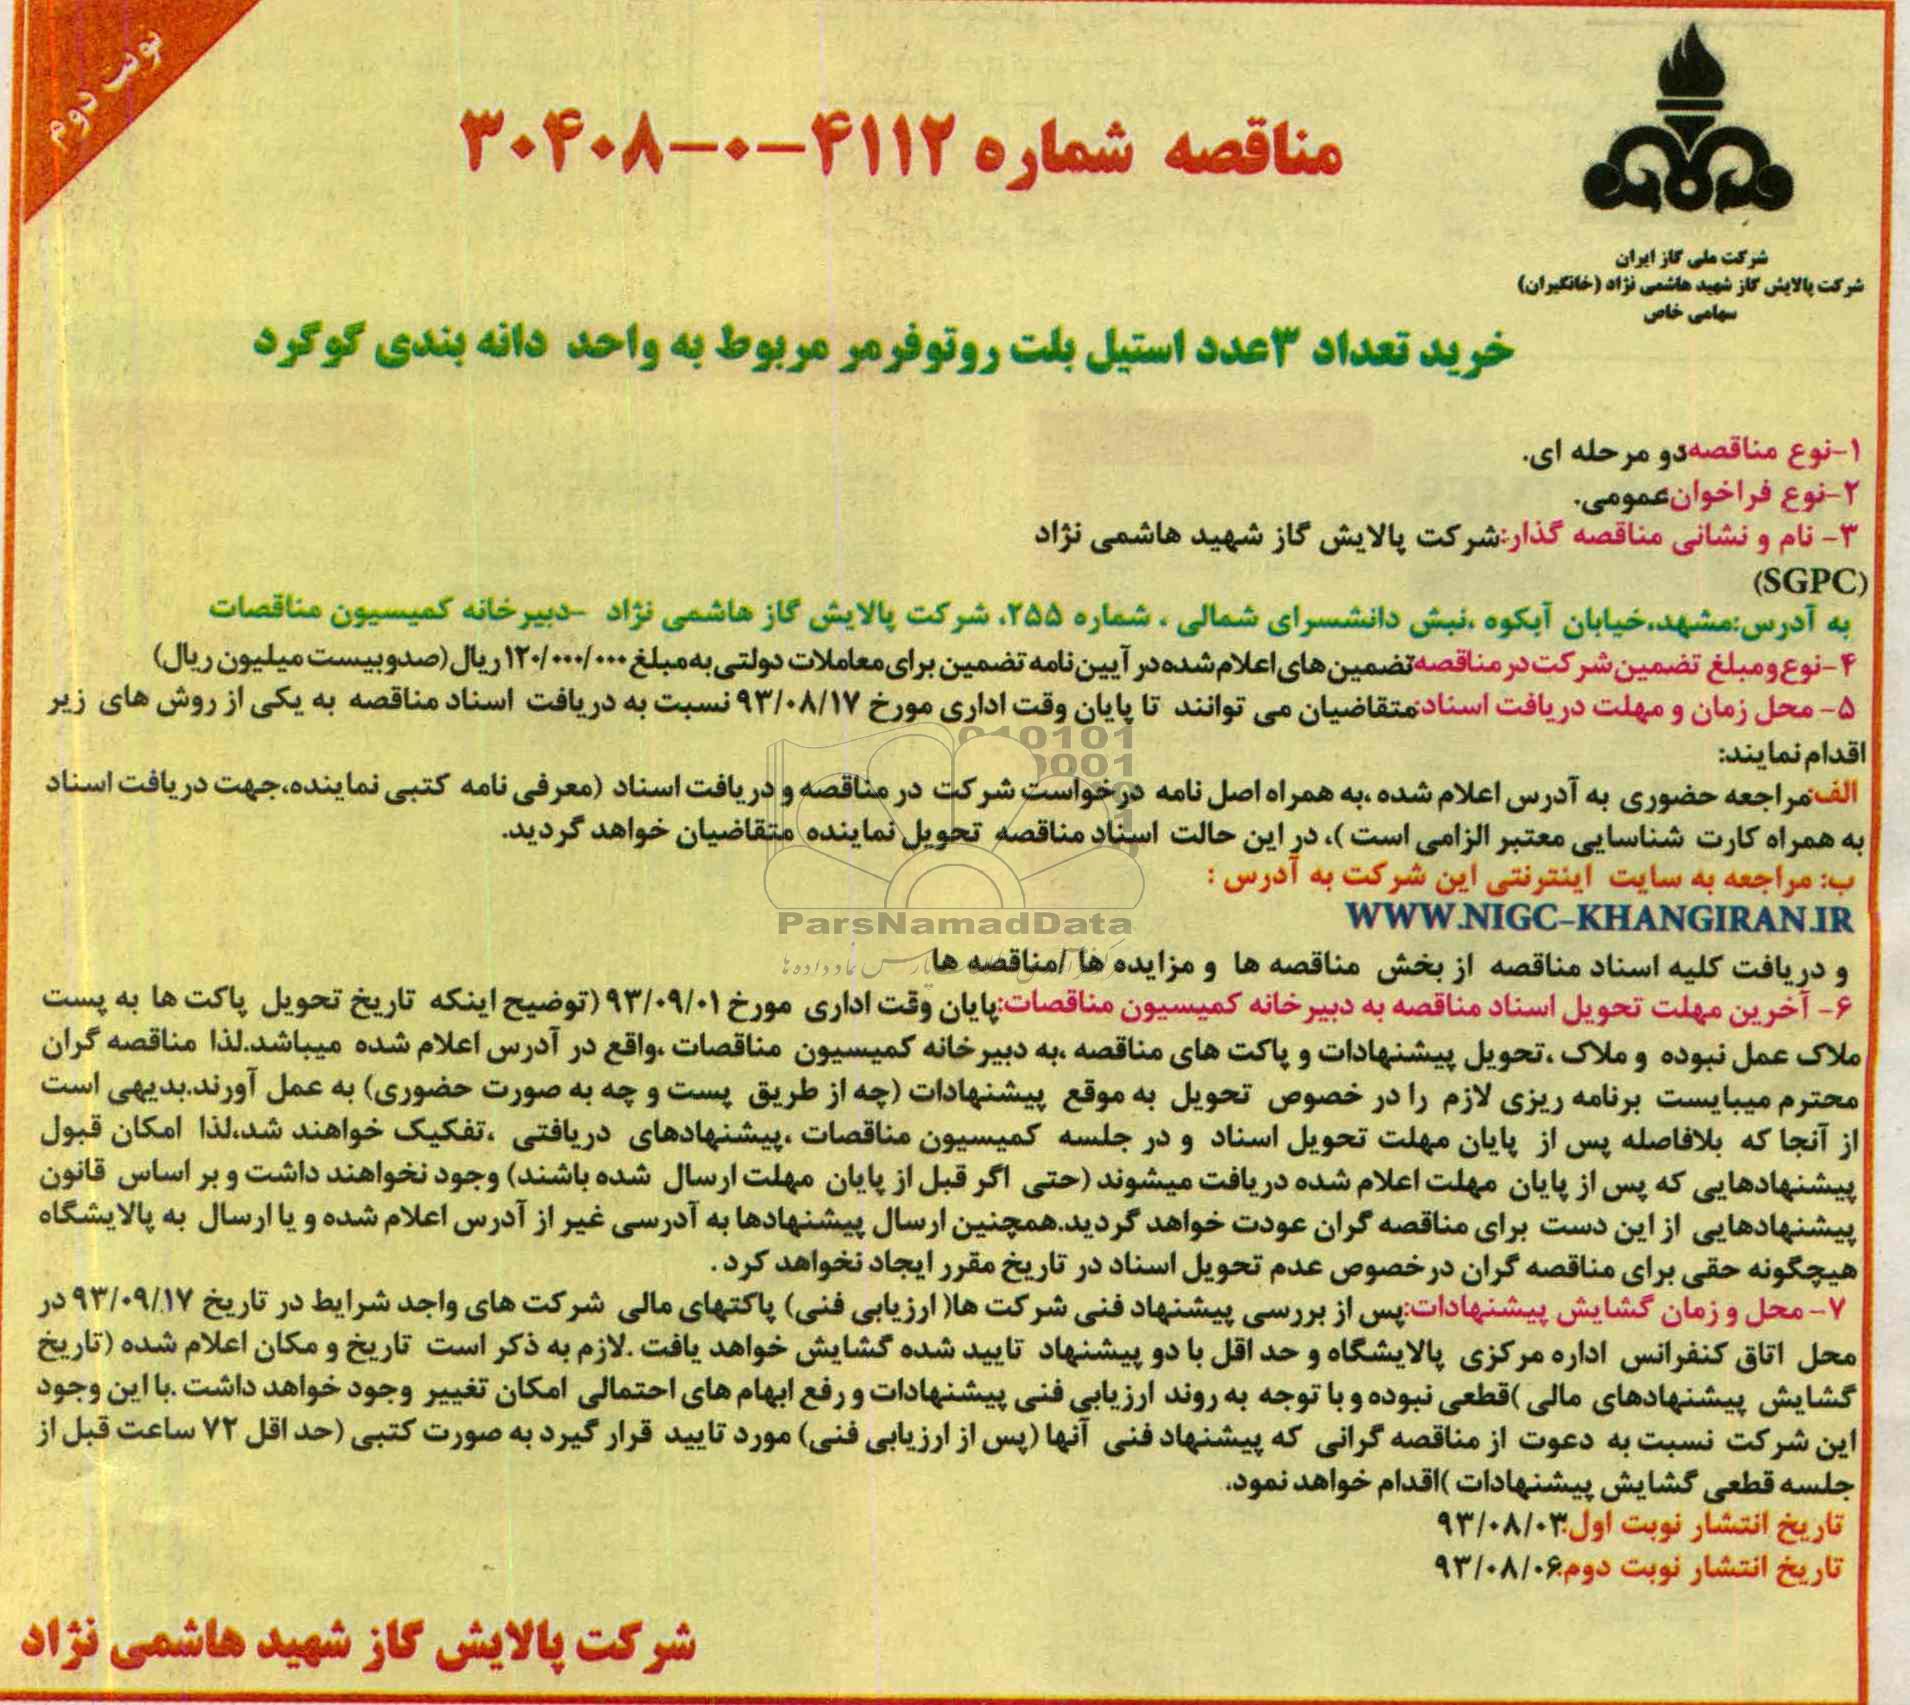 نوبت دوم
مناقصه شماره ۴۱۱۲-۰-۳۰۴۰۸
شرکت ملی گاز ایران
شرکت پالایش گاز شهید هاشمی نژاد (خانگیران)
سهامی خاص
خرید تعداد ۳عدد استیل بلت روتوفرمر مربوط به واحد دانه بندی گوگرد
۱-نوع مناقصه:دو مرحله ای.
۲-نوع فراخوان:عمومی.
۳- نام و نشانی مناقصه گذار:شرکت پالایش گاز شهید هاشمی نژاد
(SGPC)
به آدرس:مشهد،خیابان آبکوه ،نبش دانشسرای شمالی ، شماره ۲۵۵، شرکت پالایش گاز هاشمی نژاد -دبیرخانه کمیسیون مناقصات
۴-نوع ومبلغ تضمین شرکت در مناقصه:تضمین های اعلام شده در آیین نامه تضمین برای معاملات دولتی به مبلغ ۱۲۰/۰۰۰/۰۰۰ ریال (صدوبیست میلیون ریال)
۵- محل زمان و مهلت دریافت اسناد:متقاضیان می توانند تا پایان وقت اداری مورخ ۹۳/۰۸/۱۷ نسبت به دریافت اسناد مناقصه به یکی از روش های زیر
اقدام نمایند:
الف:مراجعه حضوری به آدرس اعلام شده ،به همراه اصل نامه درخواست شرکت در مناقصه و دریافت اسناد (معرفی نامه کتبی نماینده،جهت دریافت اسناد
به همراه کارت شناسایی معتبر الزامی است )، در این حالت اسناد مناقصه تحویل نماینده متقاضیان خواهد گردید.
ب: مراجعه به سایت اینترنتی این شرکت به آدرس :
WWW.NIGC-KHANGIRAN.IR
و دریافت کلیه اسناد مناقصه از بخش مناقصه ها و مزایده ها /مناقصه ها
۶- آخرین مهلت تحویل اسناد مناقصه به دبیرخانه کمیسیون مناقصات:پایان وقت اداری مورخ ۹۳/۰۹/۰۱ (توضیح اینکه تاریخ تحویل پاکت ها به پست
ملاک عمل نبوده و ملاک ،تحویل پیشنهادات و پاکت های مناقصه ،به دبیرخانه کمیسیون مناقصات ،واقع در آدرس اعلام شده میباشد.لذا مناقصه گران
محترم میبایست برنامه ریزی لازم را در خصوص تحویل به موقع پیشنهادات (چه از طریق پست و چه به صورت حضوری) به عمل آورند.بدیهی است
از آنجا که بلافاصله پس از پایان مهلت تحویل اسناد و در جلسه کمیسیون مناقصات ،پیشنهادهای دریافتی ،تفکیک خواهند شد،لذا امکان قبول
پیشنهادهایی که پس از پایان مهلت اعلام شده دریافت میشوند (حتی اگر قبل از پایان مهلت ارسال شده باشند) وجود نخواهند داشت و بر اساس قانون
پیشنهادهایی از این دست برای مناقصه گران عودت خواهد گردید.همچنین ارسال پیشنهادها به آدرسی غیر از آدرس اعلام شده و یا ارسال به پالایشگاه
هیچگونه حقی برای مناقصه گران درخصوص عدم تحویل اسناد در تاریخ مقرر ایجاد نخواهد کرد .
۷- محل و زمان گشایش پیشنهادات:پس از بررسی پیشنهاد فنی شرکت ها( ارزیابی فنی) پاکتهای مالی شرکت های واجد شرایط در تاریخ ۹۳/۰۹/۱۷ در
محل اتاق کنفرانس اداره مرکزی پالایشگاه و حد اقل با دو پیشنهاد تایید شده گشایش خواهد یافت .لازم به ذکر است تاریخ و مکان اعلام شده (تاریخ
گشایش پیشنهادهای مالی )قطعی نبوده و با توجه به روند ارزیابی فنی پیشنهادات و رفع ابهام های احتمالی امکان تغییر وجود خواهد داشت .با این وجود
این شرکت نسبت به دعوت از مناقصه گرانی که پیشنهاد فنی آنها (پس از ارزیابی فنی) مورد تایید قرار گیرد به صورت کتبی (حد اقل ۷۲ ساعت قبل از
جلسه قطعی گشایش پیشنهادات )اقدام خواهد نمود.
تاریخ انتشار نوبت اول:۹۳/۰۸/۰۳
تاریخ انتشار نوبت دوم:۹۳/۰۸/۰۶
شرکت پالایش گاز شهید هاشمی نژاد
ParsNamadData